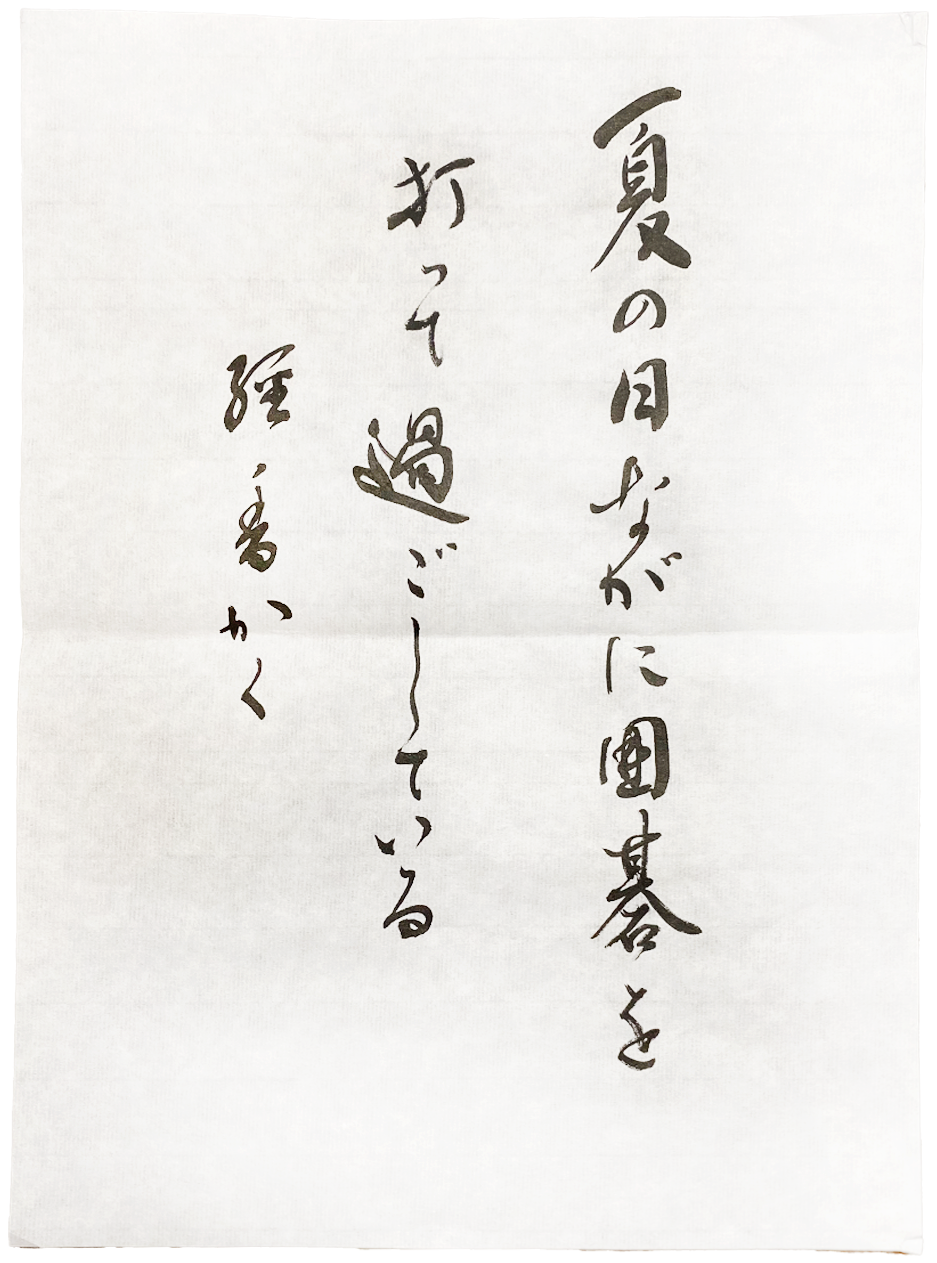 夏の日ながに囲碁を
打って過ごしている
経香かく